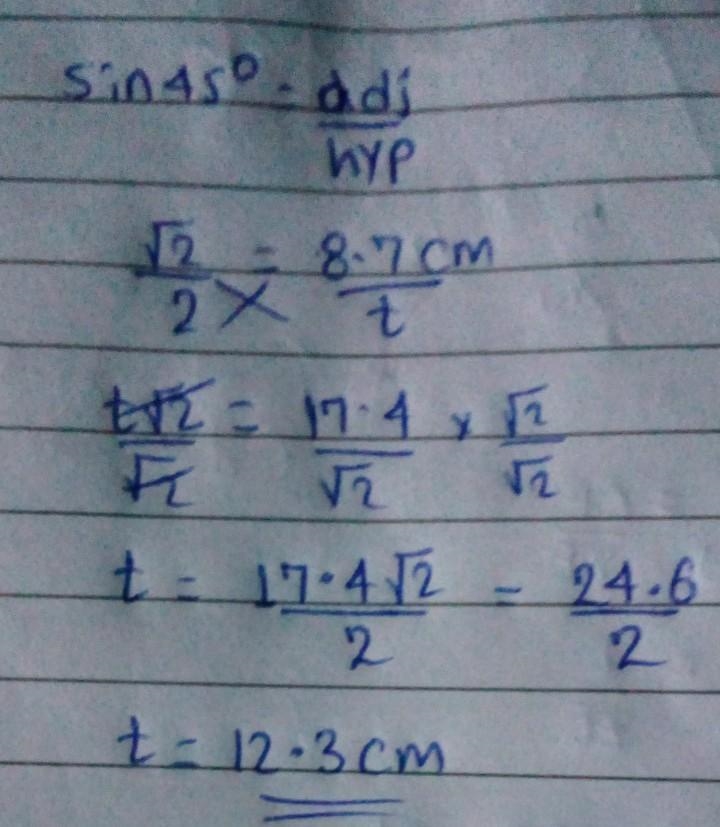 sin45° = adj/hyp
√2/2 = 8.7cm/t
t√2/√2 = 17.4/√2 × √2/√2
t = 17.4√2/2 = 24.6/2
t = 12.3cm